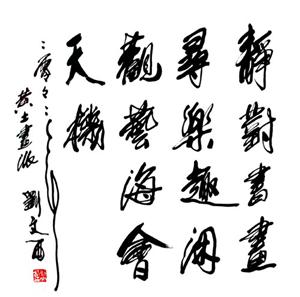 靜對書畫
尋樂趣洞
觀藝海會
天機
二零々二年
黃土畫派
劉文西